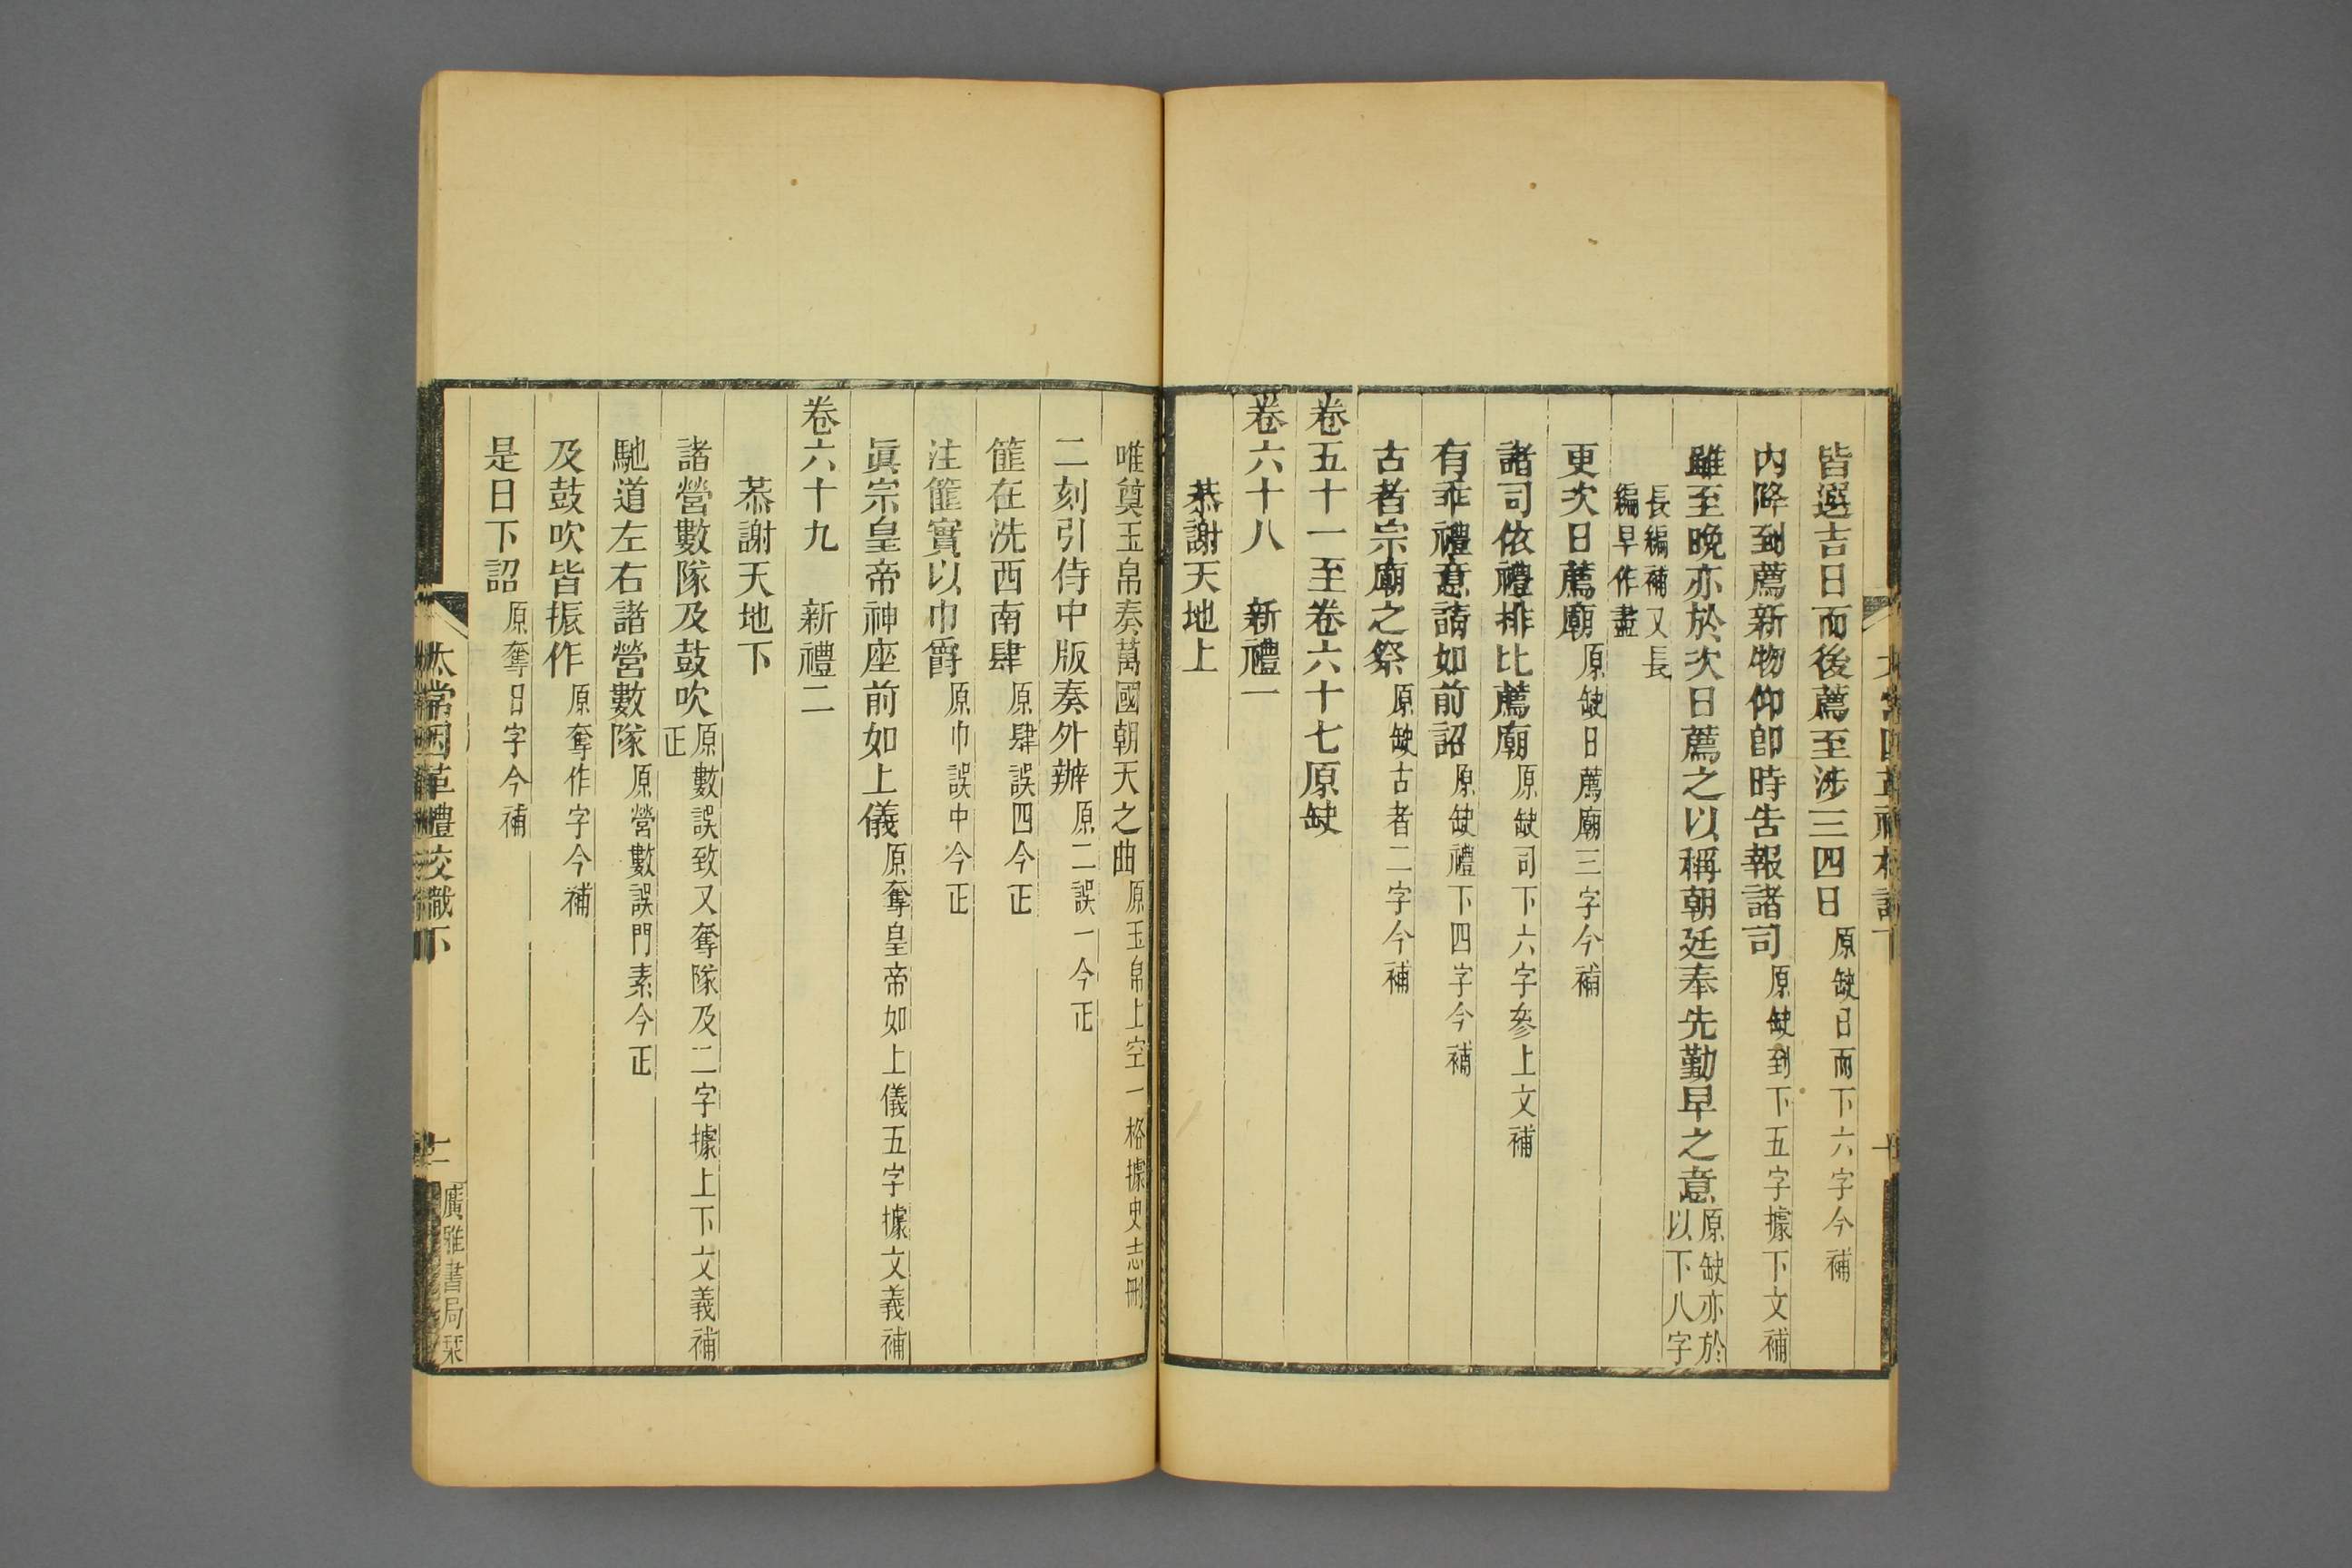 皆選吉日而後薦至涉三四日原缺日而下六字今補
內降到薦新物仰即時告報諸司原缺到下五字據下文補
雖至晚亦於次日薦之以稱朝廷奉先勤早之意原缺亦於以下八字
長編補又長編早作盡
更次日薦廟原缺日薦廟三字今補
諸司依禮排比薦廟原缺司下六字參上文補
有乖禮意請如前詔原缺禮下四字今補
古者宗廟之祭原缺古者二字今補
卷五十一至卷六十七原缺
卷六十八　新禮一
恭謝天地上
唯奠玉帛奏萬國朝天之曲原玉帛上空一格據史志刪
二刻引侍中版奏外辦原二誤一今正
篚在洗西南肆原肆誤四今正
注篚實以巾爵原巾誤中今正
眞宗皇帝神座前如上儀原奪皇帝如上儀五字據文義補
卷六十九　新禮二
恭謝天地下
諸營數隊及鼓吹原數誤致又奪隊及二字據上下文義補正
馳道左右諸營數隊原營數誤門素今正
及鼓吹皆振作原奪作字今補
是日下詔原奪日字今補
太常因革禮校識下
廣雅書局栞